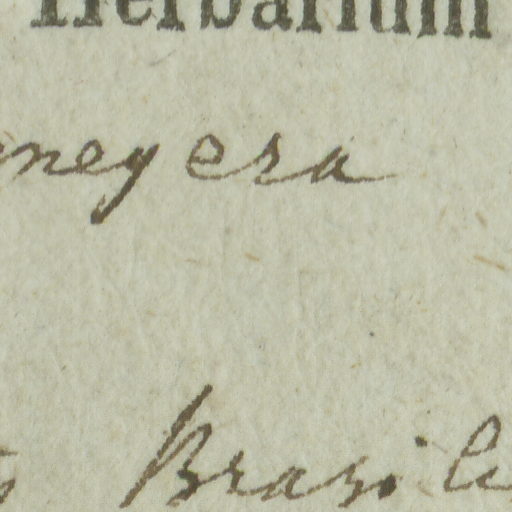 Herbarium
meyera
Brasili